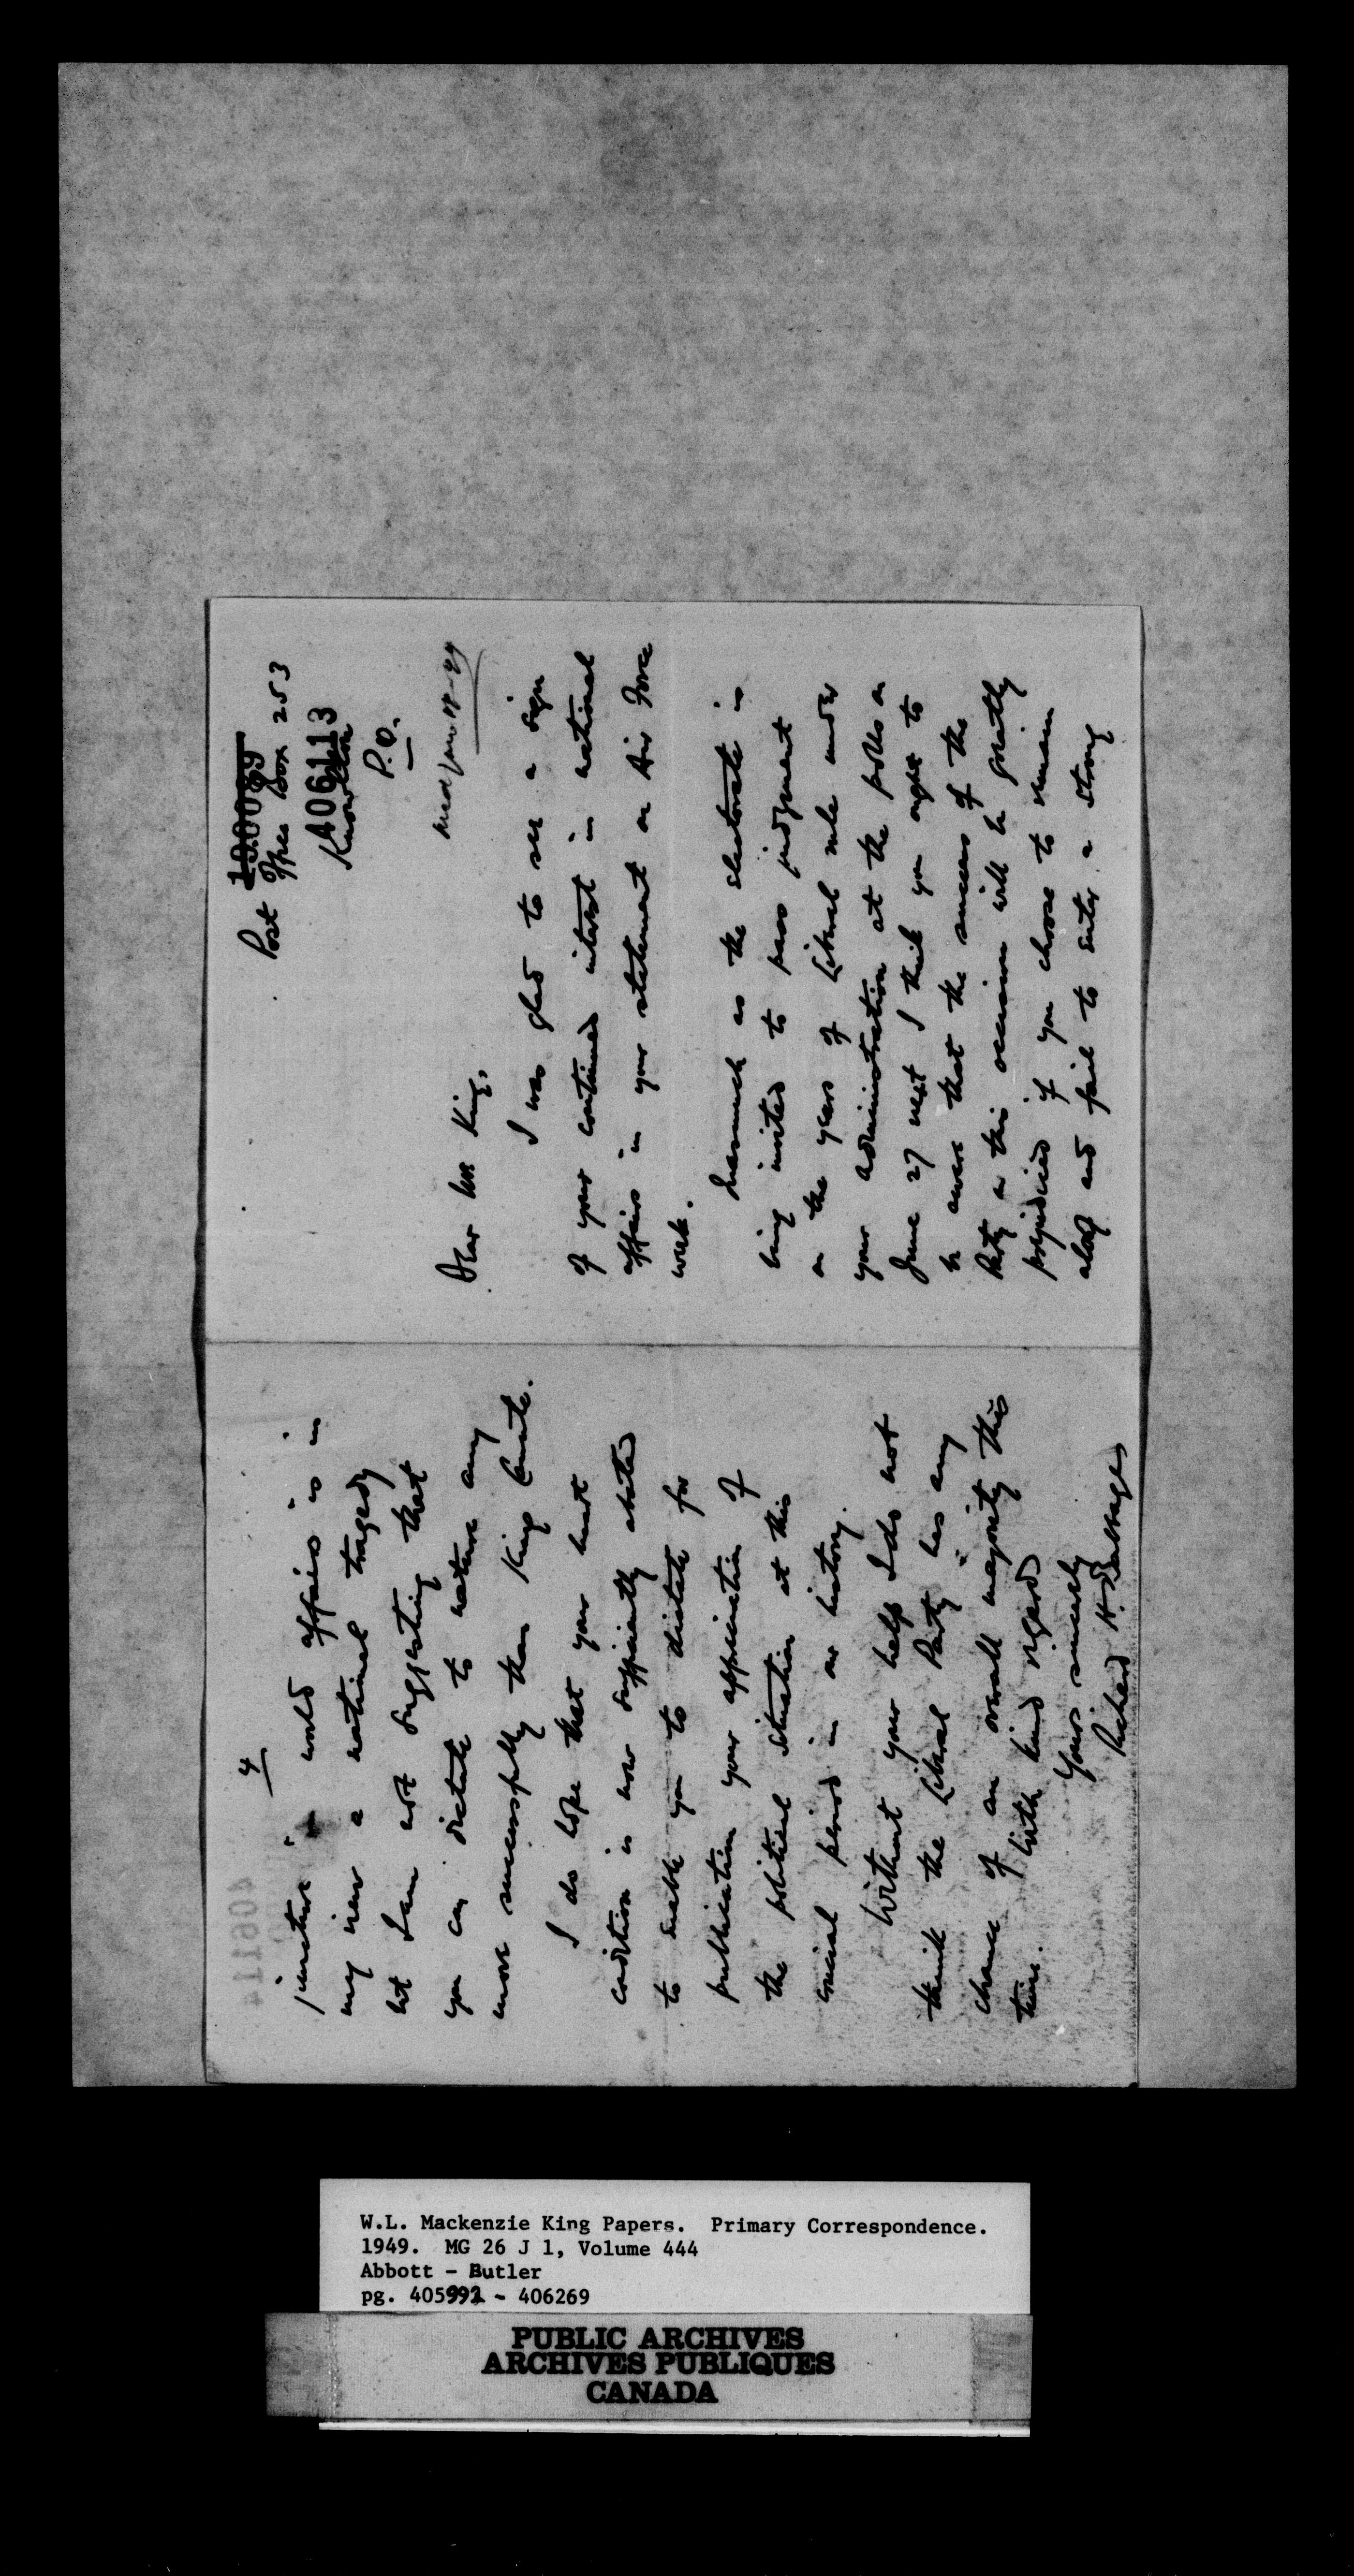 1900099
Post Office Box 253
406113
Knowlton
P.Q.
Dear Mr. King,
I was glad to see a sign
of your continued interest in national
affairs in your statement on Air Force
week.
Inasmuch as the electorate is
being invited to pass judgment
on the years of Liberal rule under
your administration at the polls on
June 27 next I think you ought to
be aware that the success of the
Party on this occasion will be greatly
prejudiced if you choose to remain
aloof and fail to enter a strong
4
406114
juncture in world affairs is in
my view a national tragedy
but I am not suggesting that
you can dictate to nature any
more successfully than King Canute.
I do hope that your heart
condition is now sufficiently abated
to enable you to dictate for
publication your appreciation of
the political situation at this
crucial period in our history.
Without your help I do not
think the Liberal Party has any
chance of an overall majority this
time.
With kind regards
Yours sincerely
Richard H.
W.L. Mackenzie King Papers. Primary Correspondence.
1949. MG 26 J 1, Volume 444
Abbott - Butler
pg. 405992 - 406269
PUBLIC ARCHIVES
ARCHIVES PUBLIQUES
CANADA